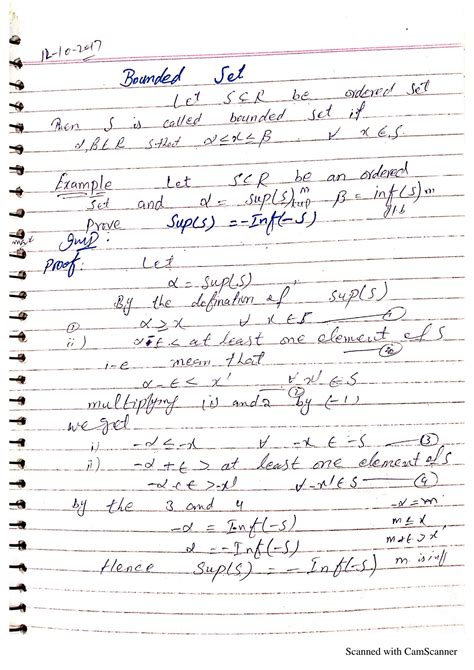 12-10-2017
Bounded Set
Let S⊂R be ordered set
Then S is called bounded set if
α, β ∈ R s.that α ≤ x ≤ β ∀ x ∈ S
Example Let S⊂R be an ordered
set and α = sup(S) β = inf(S) m
g.l.b
Prove Sup(S) = -Inf(-S)
Imp:
Proof: Let
α = sup(S)
By the defination of sup(S)
① α ≥ x ∀ x ∈ S ①
ii) at least one element of S
i-e mean that
α - ε < x' ∀ x' ∈ S ②
multiplying (1) and 2 by (-1)
we get
i) -α ≤ -x ∀ -x ∈ -S ③
ii) -α + ε > at least one element of S
-α + ε > -x' ∀ -x' ∈ S ④
by the 3 and 4 -α = m
-α = Inf(-S) m ≤ x
α = -Inf(-S) m + ε > x'
Hence Sup(S) = - Inf(-S) m is inf
Scanned with CamScanner